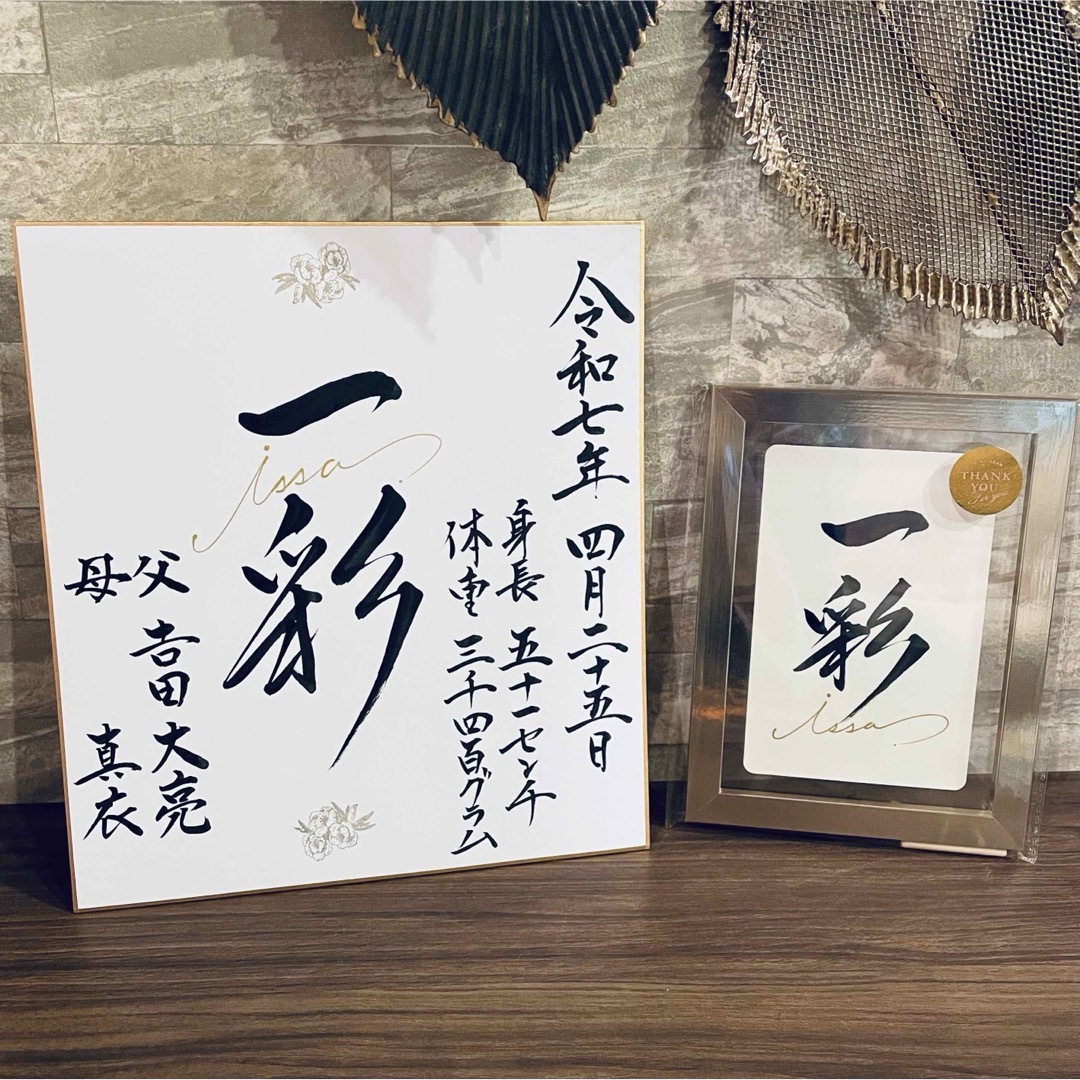 令和七年 四月二十五日
身長 五十一センチ
体重 三千四百グラム
一彩
issa
父 吉田 大亮
母 真衣
一彩
issa
THANK
YOU
for you